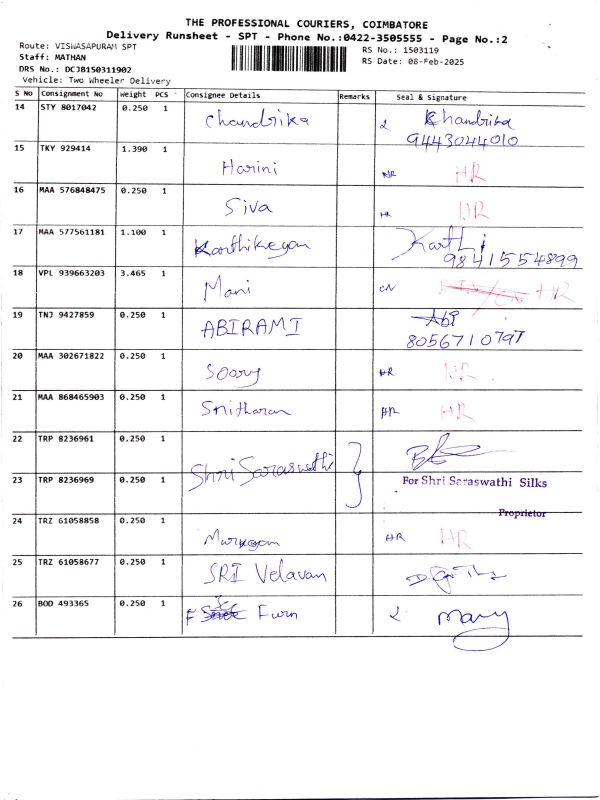 THE PROFESSIONAL COURIERS, COIMBATORE
Delivery Runsheet - SPT - Phone No.:0422-3505555 - Page No.:2
Route: VISWASAPURAM SPT
Staff: MATHAN
DRS No.: DCJB150311902
Vehicle: Two Wheeler Delivery
RS No.: 1503119
RS Date: 08-Feb-2025
S No Consignment No Weight PCS Consignee Details Remarks Seal & Signature
14 STY 8017042 0.250 1 Chandrika Chandrika
9443044010
15 TKY 929414 1.390 1 Harini HR HR
16 MAA 576848475 0.250 1 Siva HR HR
17 MAA 577561181 1.100 1 Karthikeyan Karthi
9841554899
18 VPL 939663203 3.465 1 Mani CN HR
19 TNJ 9427859 0.250 1 ABIRAMI Abi
8056710797
20 MAA 302671822 0.250 1 Soory HR HR
21 MAA 868465903 0.250 1 Snitharan HR HR
22 TRP 8236961 0.250 1 Shri Saraswathi
23 TRP 8236969 0.250 1 For Shri Saraswathi Silks
Proprietor
24 TRZ 61058858 0.250 1 Murugan HR HR
25 TRZ 61058677 0.250 1 SRI Velavan
26 BOD 493365 0.250 1 F Furn Mary